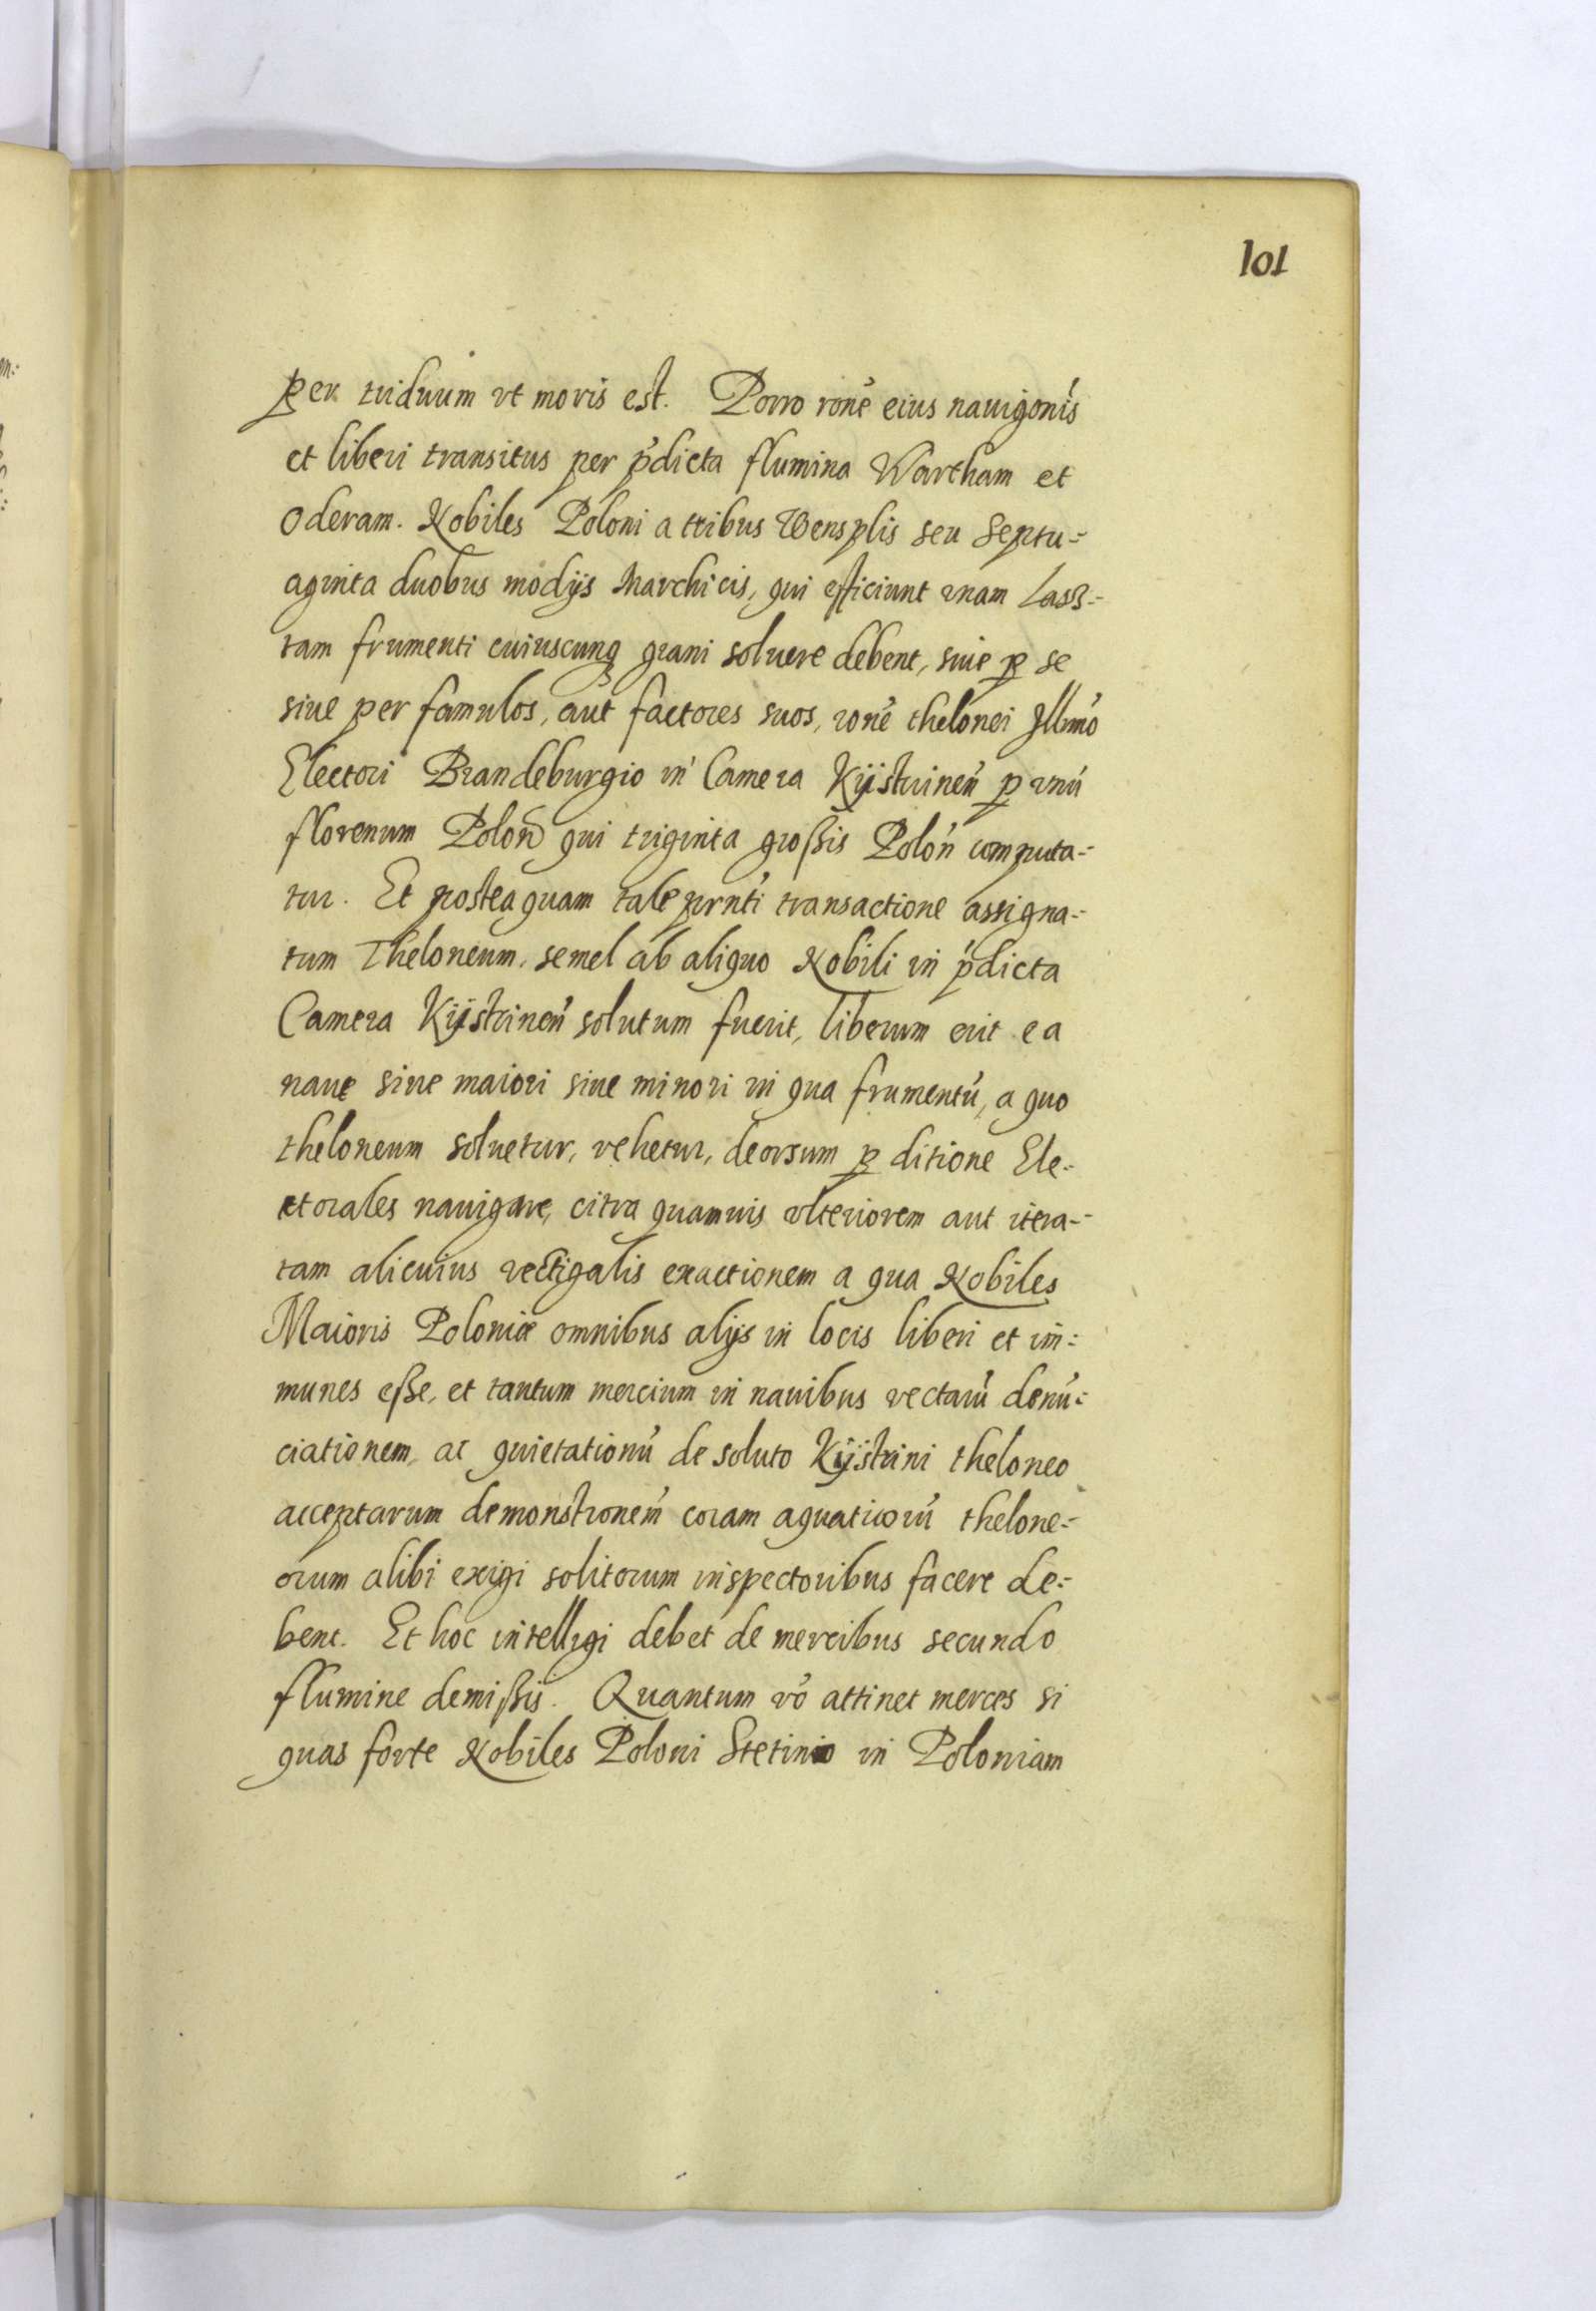 101
per triduum vt moris est. Porro rone̅ eius nauigonis
et liberi transitus per p̅dicta flumina Wartham et
Oderam. Nobiles Poloni a tribus Wensplis seu Septu-
aginta duobus modijs Marchicis, qui efficiunt vnam Lass-
tam frumenti cuiuscunq̨ grani soluere debent, siue ꝑ se
siue per famulos, aut factores suos, rone̅ thelonei Illmo̅
Electori Brandeburgio in Camera Kÿstrinen̅ ꝑ vnu̅
florenum Polon̅ qui triginta großis Polon̅ computa-
tur. Et posteaquam tale prnti̅ transactione assigna-
tum Theloneum, semel ab aliquo Nobili in p̅dicta
Camera Kÿstrinen̅ solutum fuerit, liberum erit ea
naue siue maiori siue minori in qua frumentu̅, a quo
theloneum soluetur, vehetur, deorsum ꝑ ditione Ele-
ctorales nauigare, citra quamuis vlteriorem aut itera-
tam alicuius vectigalis exactionem a qua Nobiles
Maioris Poloniæ omnibus alijs in locis liberi et im-
munes eße, et tantum mercium in nauibus vectaru̅ denu̅-
ciationem, ac quietationu̅ de soluto Kÿstrini theloneo
acceptarum demonstronem̅ coram aquaticoru̅ thelone-
orum alibi exigi solitorum inspectoribus facere de-
bent. Et hoc intelligi debet de mercibus secundo
flumine demißis. Quantum vo̅ attinet merces si
quas forte Nobiles Poloni Stetinio in Poloniam